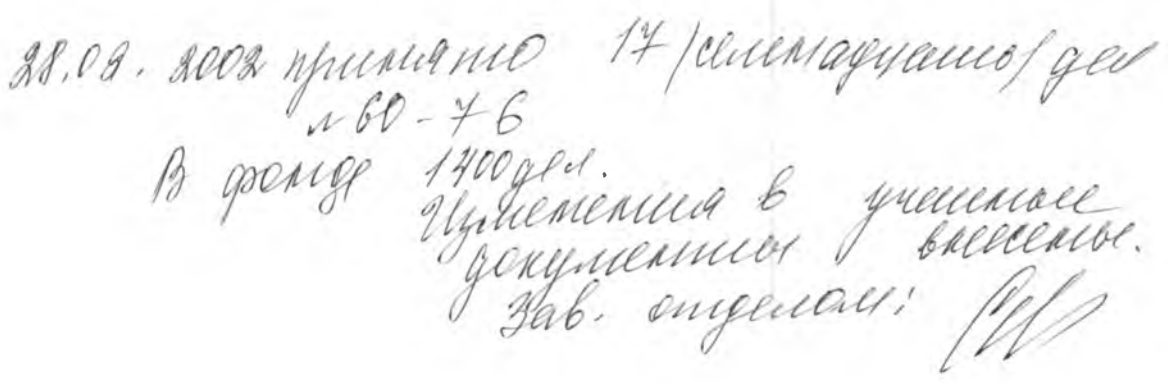 28.02. 2002 принято 17 /семнадцать/ дел
№ 60-76
В фонде 1400 дел.
Изменения в учетные
документы внесены.
Зав. отделом: